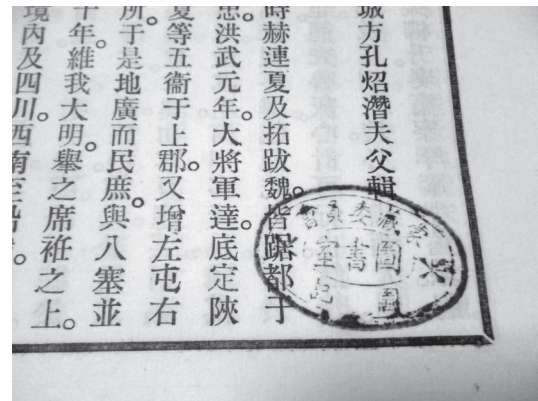 城方孔炤潛夫父輯
時赫連夏及拓跋魏皆踞都于
忠洪武元年。大將軍達。底定陝
夏等五衞于上郡。又增左屯右
所。于是地廣而民庶。與八塞並
十年。維我大明。舉之席袵之上。
境內及四川西南至
委員會
藏圖
書
室